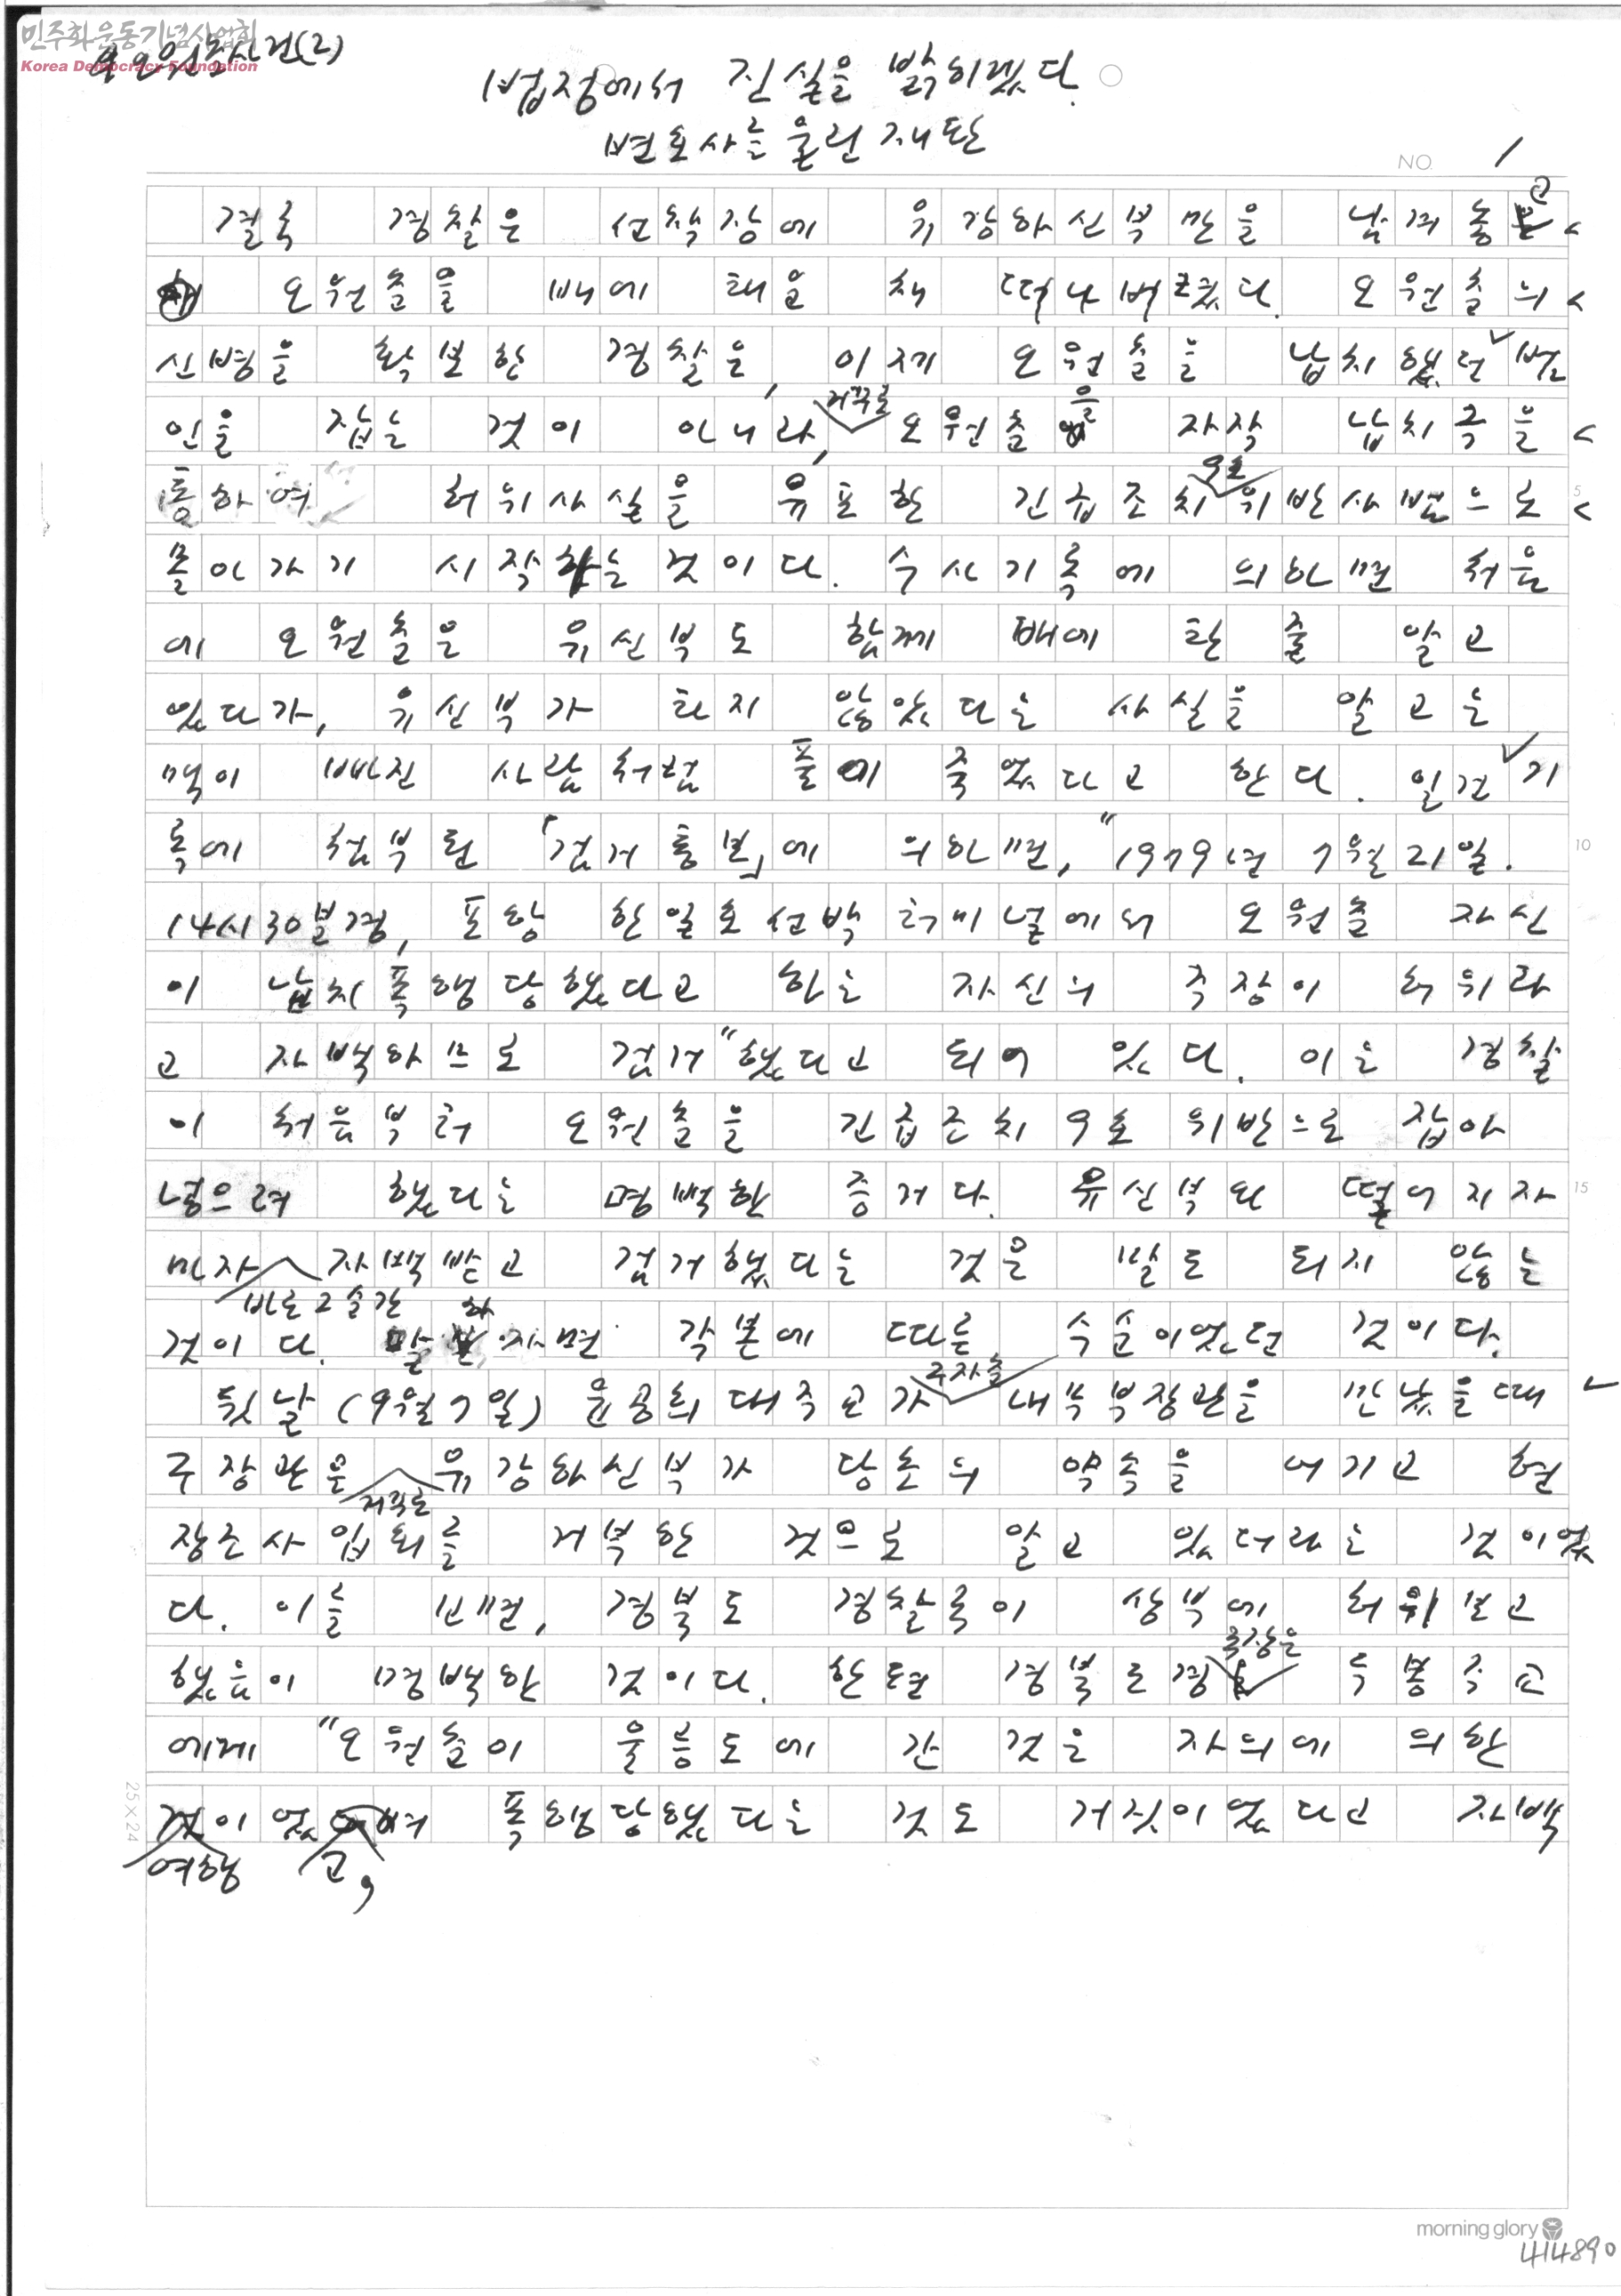 민주화운동기념사업회
Korea Democracy Foundation
오원춘사건(2)
법정에서 진실을 밝히겠다.
변호사를 울린 재판
NO. 1
결국 경찰은 선착장에 유강하신부만을 남겨놓고
오원춘을 배에 태운 채 떠나버렸다. 오원춘의
신병을 확보한 경찰은, 이제 오원춘을 납치했던 범
인을 잡는 것이 아니라, 거꾸로 오원춘을 자작 납치극을
통하여 허위사실을 유포한 긴급조치 9호 위반사범으로
몰아가기 시작하는 것이다. 수사기록에 의하면 처음
에 오원춘은 유신부도 함께 배에 탄 줄 알고
있다가, 유신부가 타지 않았다는 사실을 알고는
맥이 빠진 사람처럼 풀이 죽었다고 한다. 일건 기
록에 첨부된 「검거통보」에 의하면, "1979년 7월 21일.
14시 30분경, 포항 한일호선박 터미널에서 오원춘 자신
이 납치폭행당했다고 하는 자신의 주장이 허위라
고 자백하므로 검거"했다고 되어 있다. 이는 경찰
이 처음부터 오원춘을 긴급조치 9호 위반으로 잡아
넣으려 했다는 명백한 증거다. 유신부와 떨어지자
마자 바로 그 순간 자백받고 검거했다는 것은 말도 되지 않는
것이다. 말하자면 각본에 따른 수순이었던 것이다.
뒷날(9월 7일) 윤공희대주교가 구자춘 내무부장관을 만났을 때
구장관은 거꾸로 유강하신부가 당초의 약속을 어기고 현
장조사 입회를 거부한 것으로 알고 있더라는 것이었
다. 이를 보면, 경북도 경찰국이 상부에 허위보고
했음이 명백한 것이다. 한편 경북도경국장은 두봉주교
에게 "오원춘이 울릉도에 간 것은 자의에 의한
여행이었고, 폭행당했다는 것도 거짓이었다고 자백
5
10
15
25×24
morning glory
414890